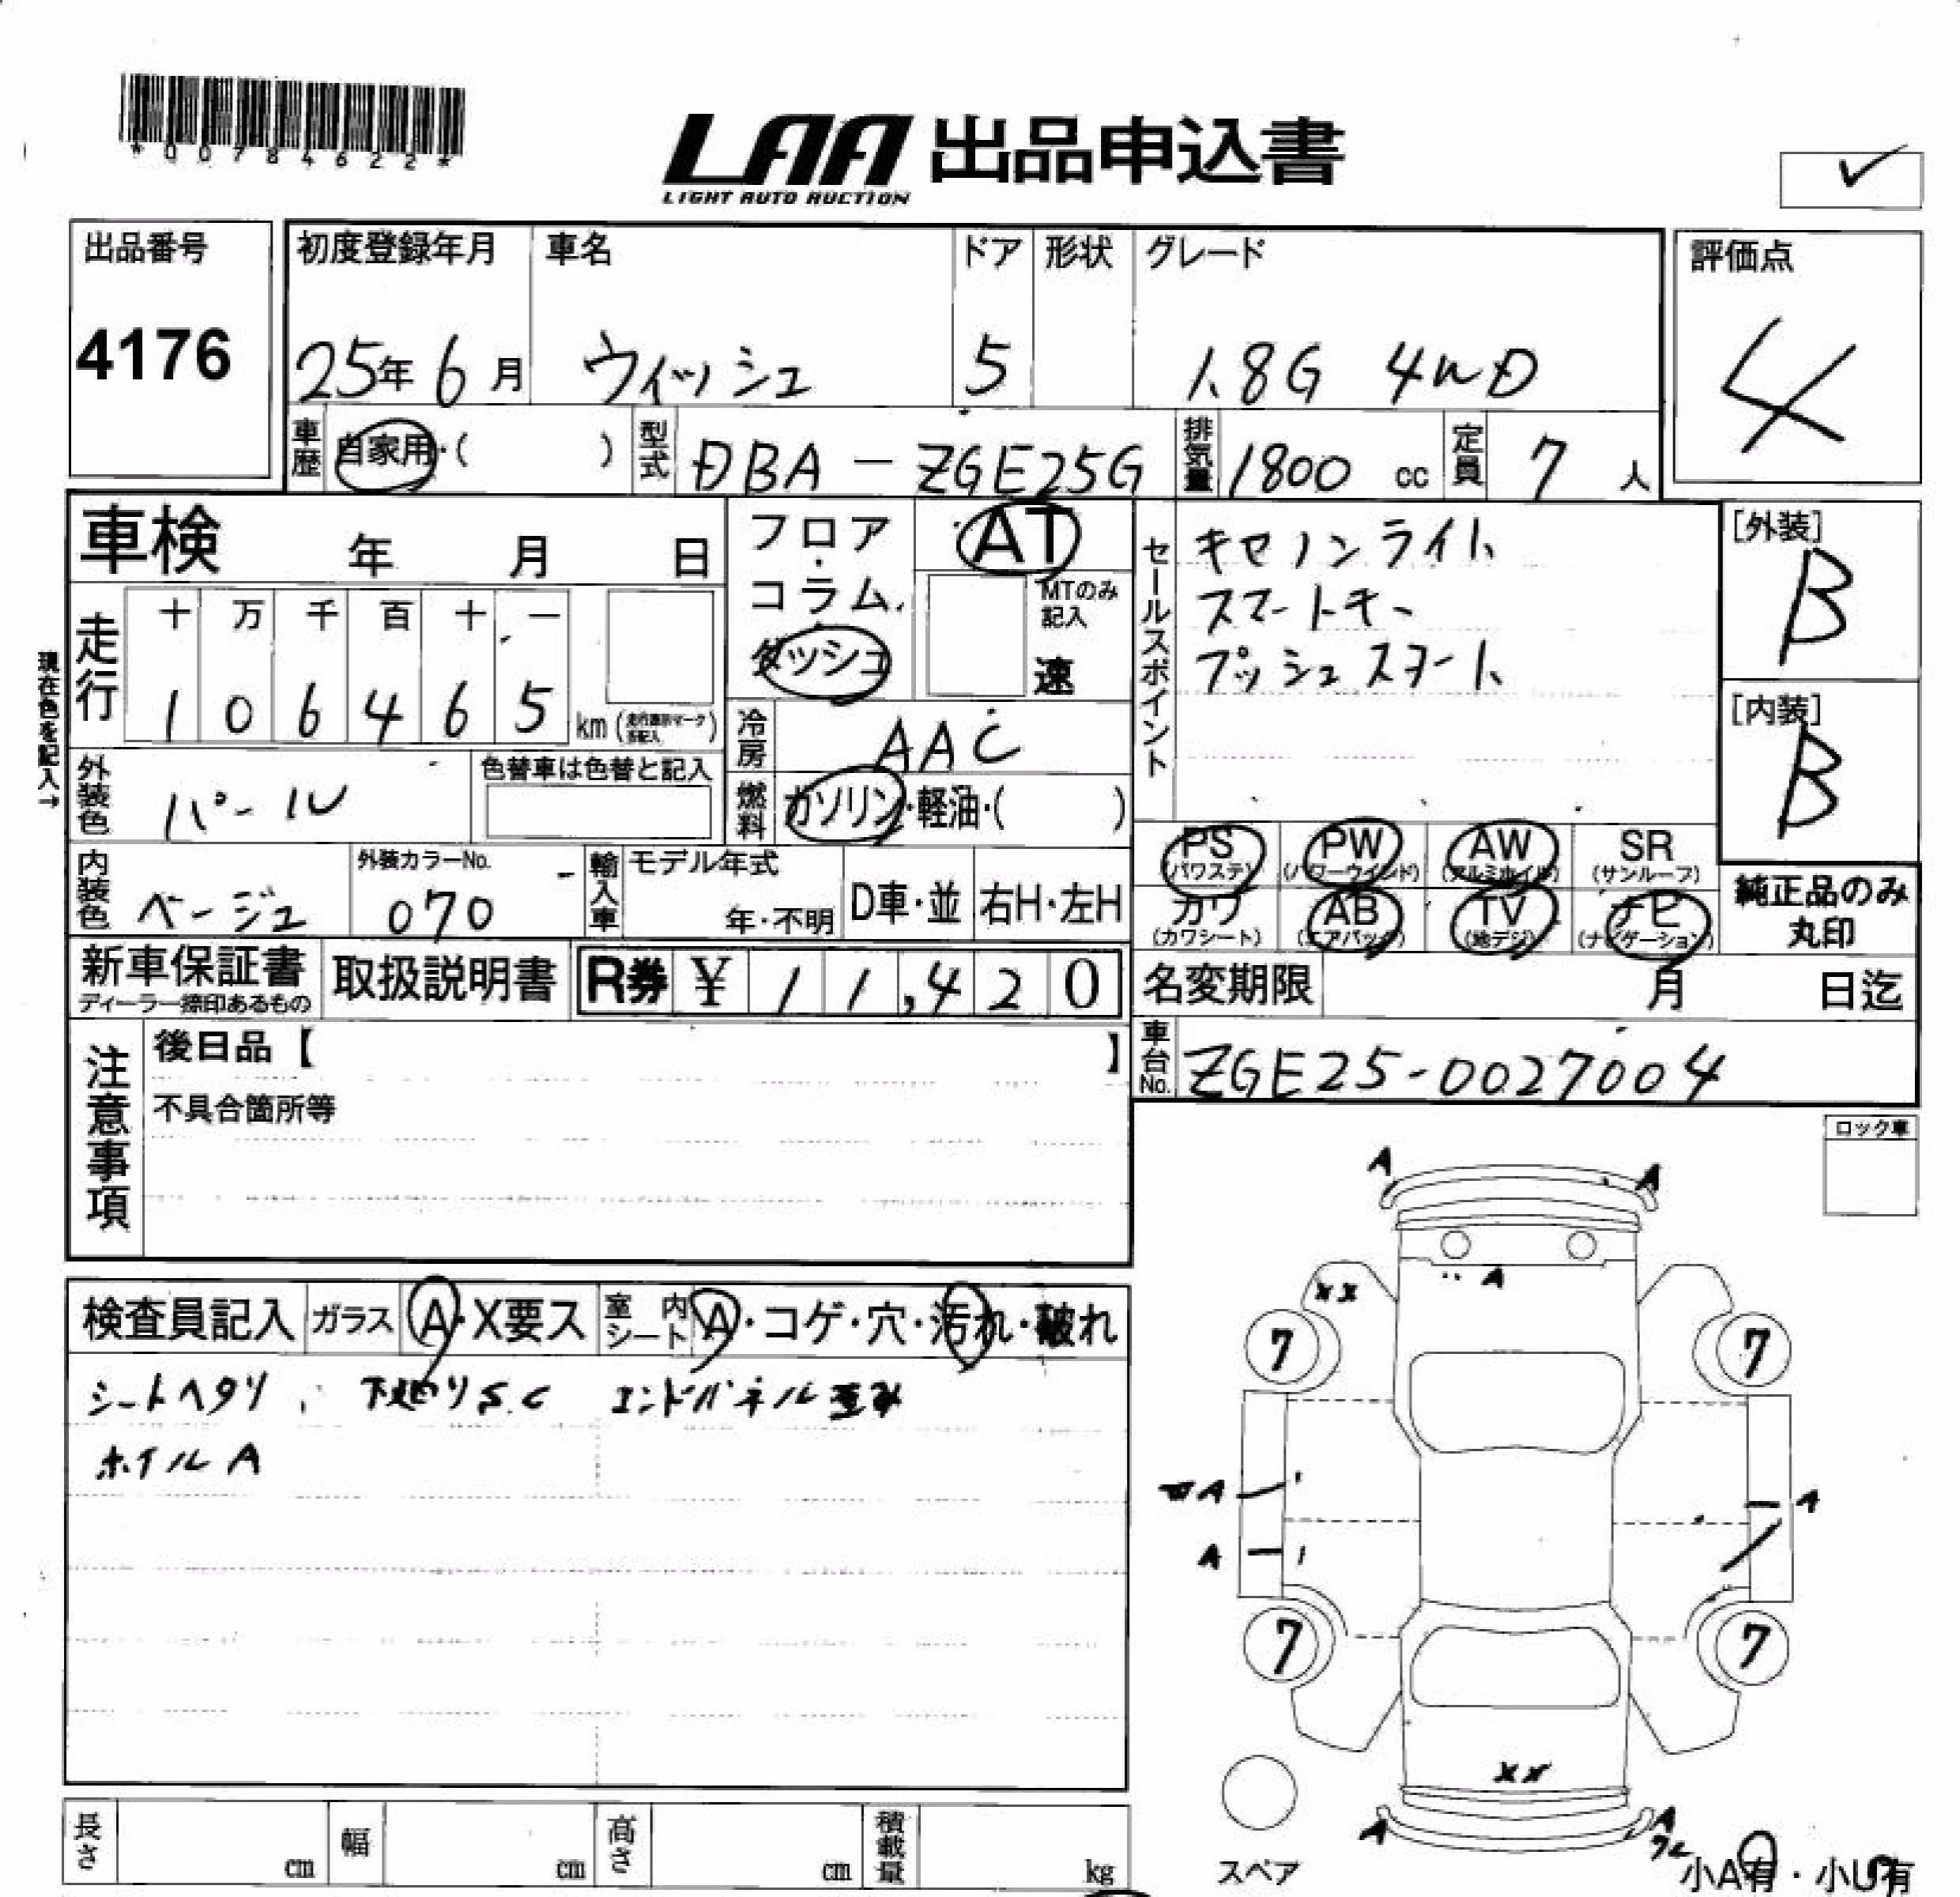 *00784622*
LAA 出品申込書
LIGHT AUTO AUCTION
出品番号
4176
初度登録年月
25年 6月
車名
ウィッシュ
ドア
5
形状
グレード
1.8G 4WD
評価点
4
車歴
自家用・( )
型式
DBA-ZGE25G
排気量
1800 cc
定員
7 人
車検 年 月 日
フロア・
コラム・
ダッシュ
AT
MTのみ
記入
速
セールスポイント
キセノンライト
スマートキー
プッシュスタート
[外装]
B
[内装]
B
現在色を記入→
走行
十 万 千 百 十 一
1 0 6 4 6 5
km
冷房
AAC
外装色
パール
色替車は色替と記入
燃料
ガソリン・軽油・( )
PS
(パワステ)
PW
(パワーウインド)
AW
(アルミホイル)
SR
(サンルーフ)
内装色
ベージュ
外装カラーNo.
070
輸入車
モデル年式
年・不明
D車・並
右H・左H
カワ
(カワシート)
AB
(エアバック)
TV
(地デジ)
ナビ
(ナビゲーション)
純正品のみ
丸印
新車保証書
ディーラー捺印あるもの
取扱説明書
R券 ¥ 11,420
名変期限 月 日迄
注意事項
後日品【 】
不具合箇所等
車台No.
ZGE25-0027004
ロック車
検査員記入
ガラス
A・X要ス
室内シート
A・コゲ・穴・汚れ・破れ
シートヘタリ、下廻りS.C エンドパネル歪み
ホイルA
A
A
A
XX
7
7
A
A
A
7
7
XX
A
A
スペア
小A有・小U有
長さ cm
幅 cm
高さ cm
積載量 kg